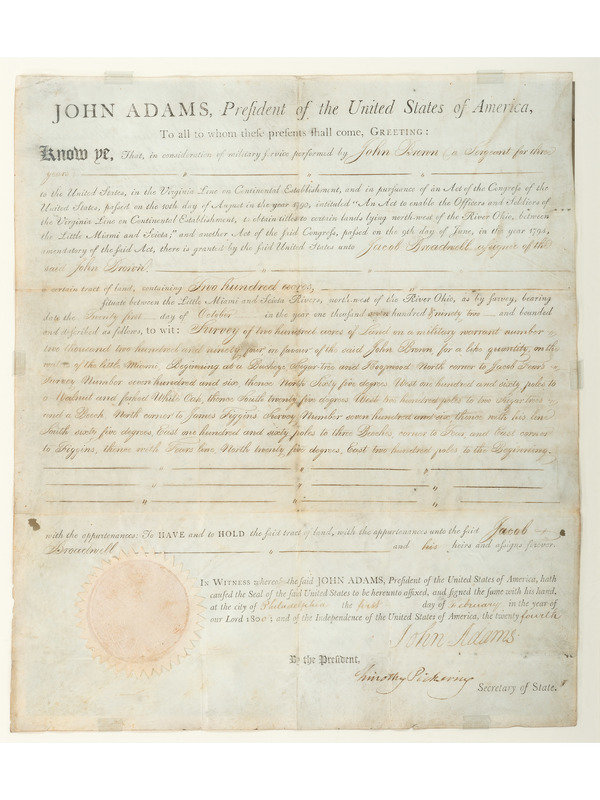 JOHN ADAMS, Preſident of the United States of America,
To all to whom theſe preſents ſhall come, GREETING:
Know ye, That, in conſideration of military ſervice performed by John Brown (a Sergeant for three
years)
to the United States, in the Virginia Line on Continental Eſtabliſhment, and in purſuance of an Act of the Congreſs of the
United States, paſſed on the 10th day of Auguſt in the year 1790, intituled "An Act to enable the Officers and Soldiers of
the Virginia Line on Continental Eſtabliſhment, to obtain titles to certain lands lying northweſt of the River Ohio, between
the Little Miami and Sciota;" and another Act of the ſaid Congreſs, paſſed on the 9th day of June, in the year 1794,
amendatory of the ſaid Act, there is granted by the ſaid United States unto Jacob Broadwell aſsignee of the
said John Brown.
a certain tract of land, containing Two hundred acres,
ſituate between the Little Miami and Sciota Rivers, northweſt of the River Ohio, as by ſurvey, bearing
date the Twenty first day of October in the year one thouſand ſeven hundred & ninety two — and bounded
and deſcribed as follows, to wit: Survey of two hundred acres of Land on a military warrant number
two thousand two hundred and ninety four in favour of the said John Brown for a like quantity, on the
waters of the little Miami, Beginning at a Buckeye Sugar tree and Hogwood North corner to Jacob Fear's
Survey Number seven hundred and six, thence North Sixty five degrees West one hundred and sixty poles to
a Walnut and forked White Oak, thence South twenty five degrees West two hundred poles to two Sugar trees
and a Beech, North corner to James Figgins's Survey Number seven hundred and six, thence with his line
South sixty five degrees, East one hundred and sixty poles to three Beeches, corner to Fear and East corner
to Figgins, thence with Fears line, North twenty five degrees, East two hundred poles to the Beginning.
with the appurtenances: To HAVE and to HOLD the ſaid tract of land, with the appurtenances unto the ſaid Jacob
Broadwell and his heirs and aſſigns forever.
IN WITNESS whereof the ſaid JOHN ADAMS, Preſident of the United States of America, hath
cauſed the Seal of the ſaid United States to be hereunto affixed, and ſigned the ſame with his hand,
at the city of Philadelphia the first day of February in the year of
our Lord 1800; and of the Independence of the United States of America, the twenty fourth
John Adams
By the Preſident,
Timothy Pickering
Secretary of State.